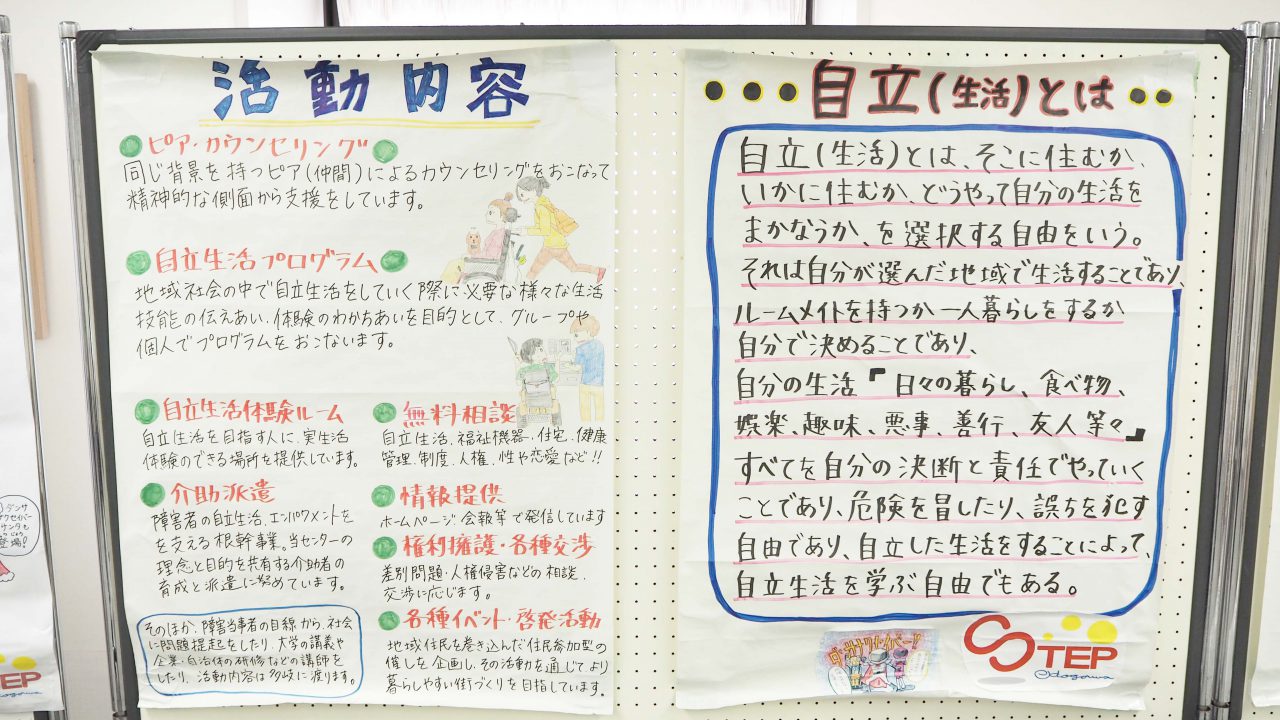 活動内容
ピア・カウンセリング
同じ背景を持つピア(仲間)によるカウンセリングをおこなって
精神的な側面から支援をしています。
自立生活プログラム
地域社会の中で自立生活をしていく際に必要な様々な生活
技能の伝えあい、体験のわかちあいを目的として、グループや
個人でプログラムをおこないます。
自立生活体験ルーム
自立生活を目指す人に、実生活
体験のできる場所を提供しています。
介助派遣
障害者の自立生活、エンパワメントを
を支える根幹事業。当センターの
理念と目的を共有する介助者の
育成と派遣に努めています。
そのほか、障害当事者の目線から、社会
に問題提起をしたり、大学の講義や
企業・自治体の研修などの講師を
したり、活動内容は多岐に渡ります。
無料相談
自立生活、福祉機器、住宅、健康
管理、制度、人権、性や恋愛など!!
情報提供
ホームページ、会報等で発信しています
権利擁護・各種交渉
差別問題・人権侵害などの相談、
交渉に応じます。
各種イベント・啓発活動
地域住民を巻き込んだ住民参加型の
催しを企画し、その活動を通じてより
暮らしやすい街づくりを目指しています。
自立(生活)とは
自立(生活)とは、そこに住むか、
いかに住むか、どうやって自分の生活を
まかなうか、を選択する自由をいう。
それは自分が選んだ地域で生活することであり、
ルームメイトを持つか一人暮らしをするか
自分で決めることであり、
自分の生活『日々の暮らし、食べ物、
娯楽、趣味、悪事、善行、友人等々』
すべてを自分の決断と責任でやっていく
ことであり、危険を冒したり、誤ちを犯す
自由であり、自立した生活をすることによって、
自立生活を学ぶ自由でもある。
STEP
@dogawa
TEP
dogawa